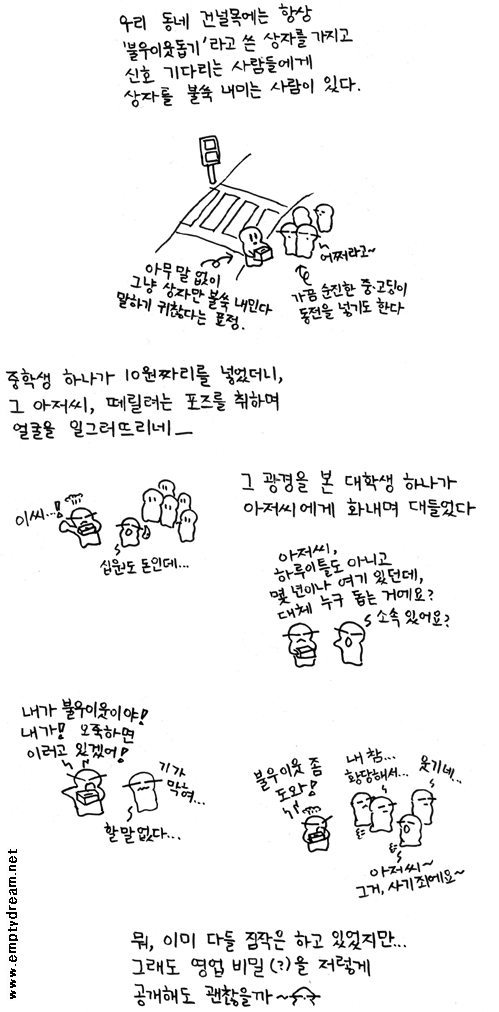 우리 동네 건널목에는 항상
'불우이웃돕기'라고 쓴 상자를 가지고
신호 기다리는 사람들에게
상자를 불쑥 내미는 사람이 있다.
아무 말 없이
그냥 상자만 불쑥 내민다
말하기 귀찮다는 표정.
어쩌라고~
가끔 순진한 중·고딩이
동전을 넣기도 한다
중학생 하나가 10원짜리를 넣었더니,
그 아저씨, 떼릴려는 포즈를 취하며
얼굴을 일그러뜨리네ㅡ
이씨...!
십원도 돈인데...
그 광경을 본 대학생 하나가
아저씨에게 화내며 대들었다
아저씨,
하루이틀도 아니고
몇 년이나 여기 있던데,
대체 누구 돕는 거예요?
소속 있어요?
내가 불우이웃이야!
내가! 오죽하면
이러고 있겠어!
기가
막혀...
할말없다...
불우이웃 좀
도와!
내 참...
황당해서...
웃기네...
아저씨~
그거, 사기죄에요~
뭐, 이미 다들 짐작은 하고 있었지만...
그래도 영업 비밀(?)을 저렇게
공개해도 괜찮을까~
www.emptydream.net